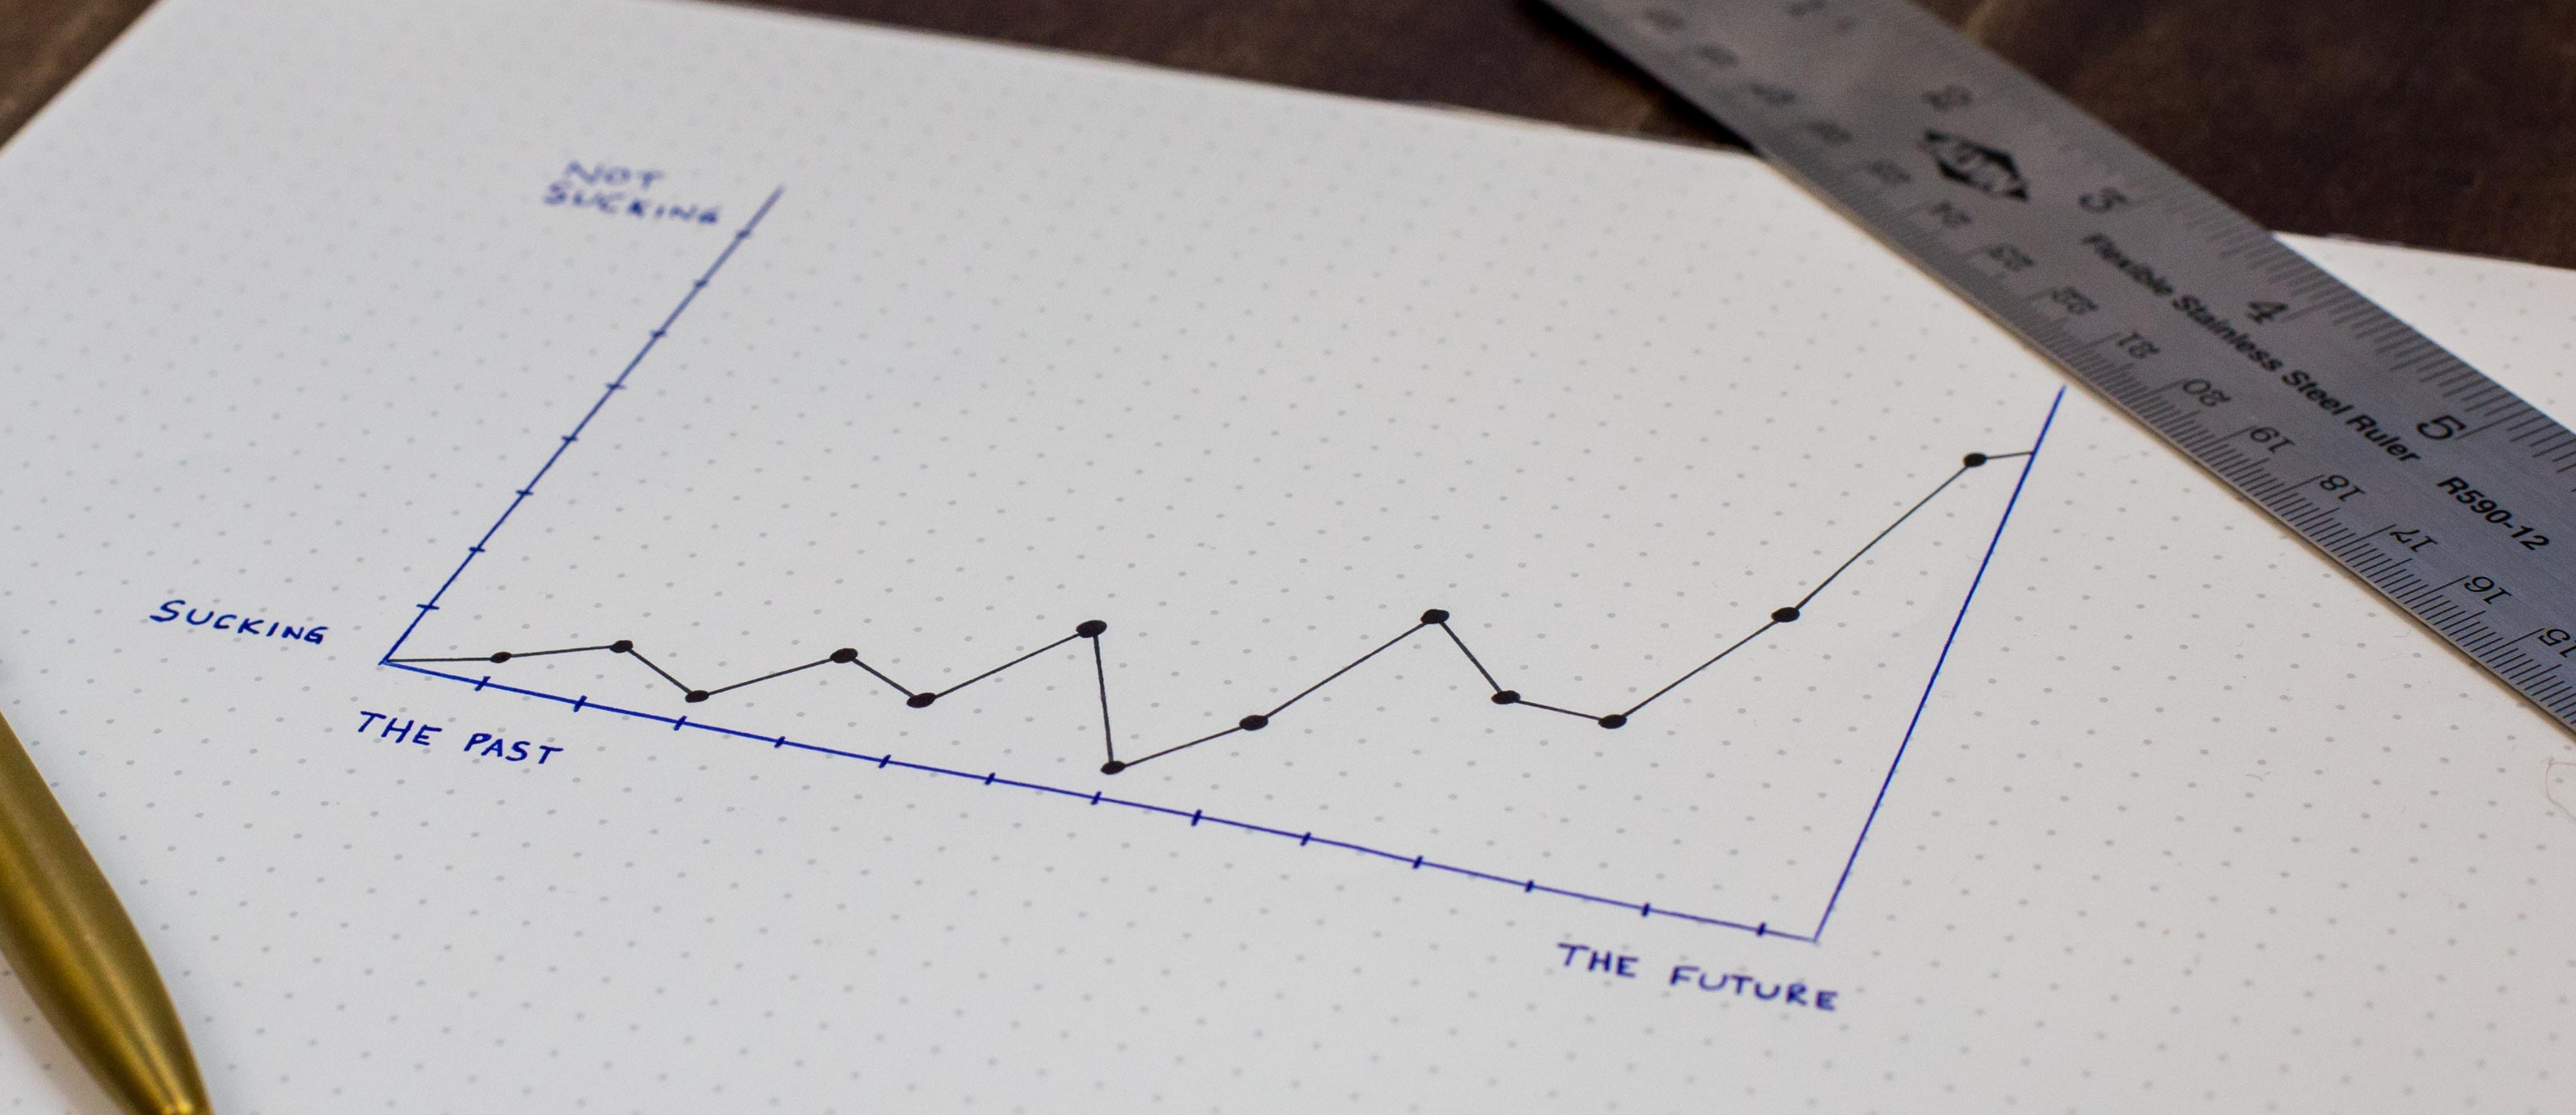 NOT
SUCKING
SUCKING
THE PAST
THE FUTURE
2
3
4
5
Flexible Stainless Steel Ruler R590-12
24
23
22
21
20
19
18
17
16
15